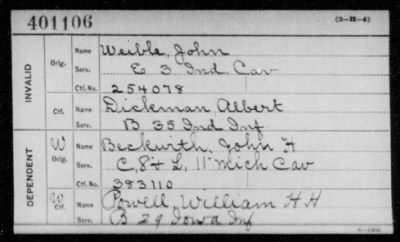 401106
(3-H-4)
INVALID
Orig. Name Weible, John
Serv. E 3 Ind Cav
Ctf. No. 254078
Ctf. Name Dickman Albert
Serv. B 35 Ind Inf
DEPENDENT
W Orig. Name Beckwith, John H
Serv. C, 8 & L, 11" Mich Cav
Ctf. No. 383110
W Ctf. Name Powell, William H H
Serv. B 29 Iowa Inf